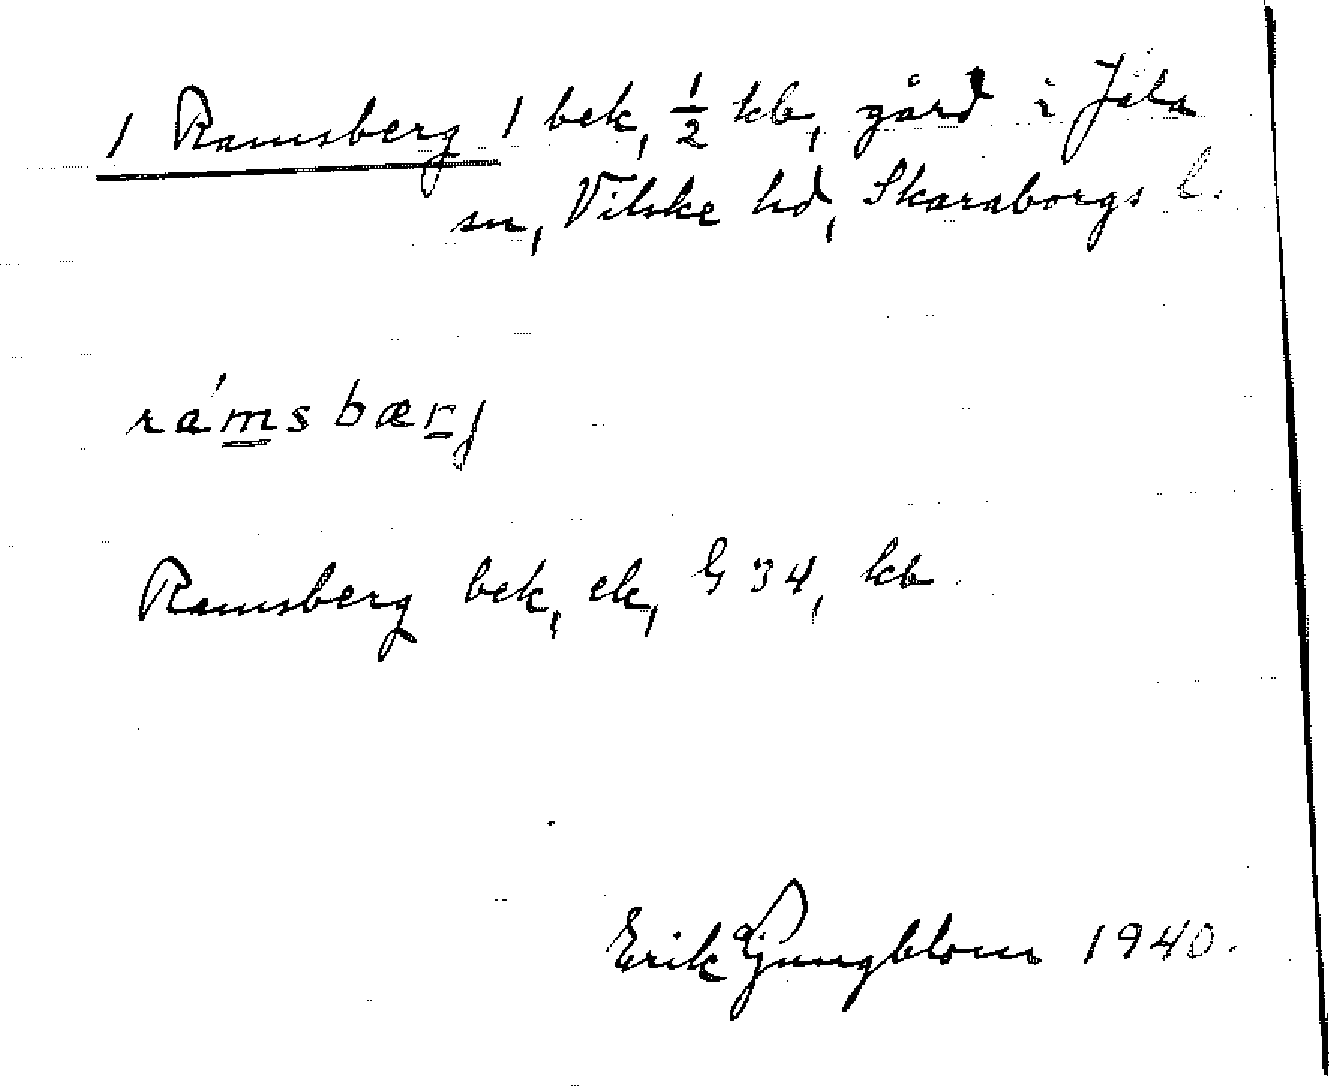 1 Ramsberg 1 bek, ½ kb, gård i Jäla
sn, Vilske hd, Skaraborgs l.
rámsbærj
Ramsberg bek, ek, G 34, kb.
Erik Ljungblom 1940.